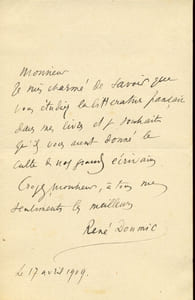 Monsieur
Je suis charmé de savoir que
vous étudiez la littérature française
dans mes livres et je souhaite
qu'ils vous aient donné le
culte de nos grands écrivains
Croyez, monsieur, à tous mes
sentiments les meilleurs
René Doumic
Le 17 avril 1909.